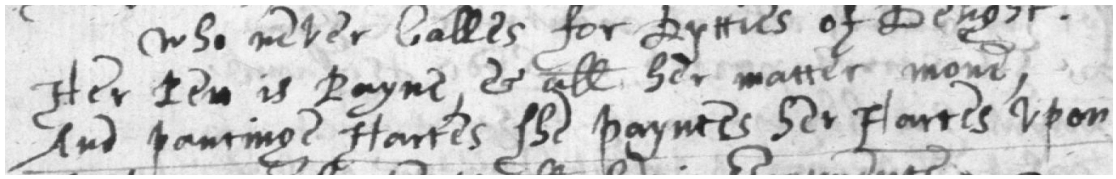 who never Calles for Dytties of Delight.
Her Pen is Payne, & all her matter mone,
And pantinge Hartes she payntes her Hartes vpon